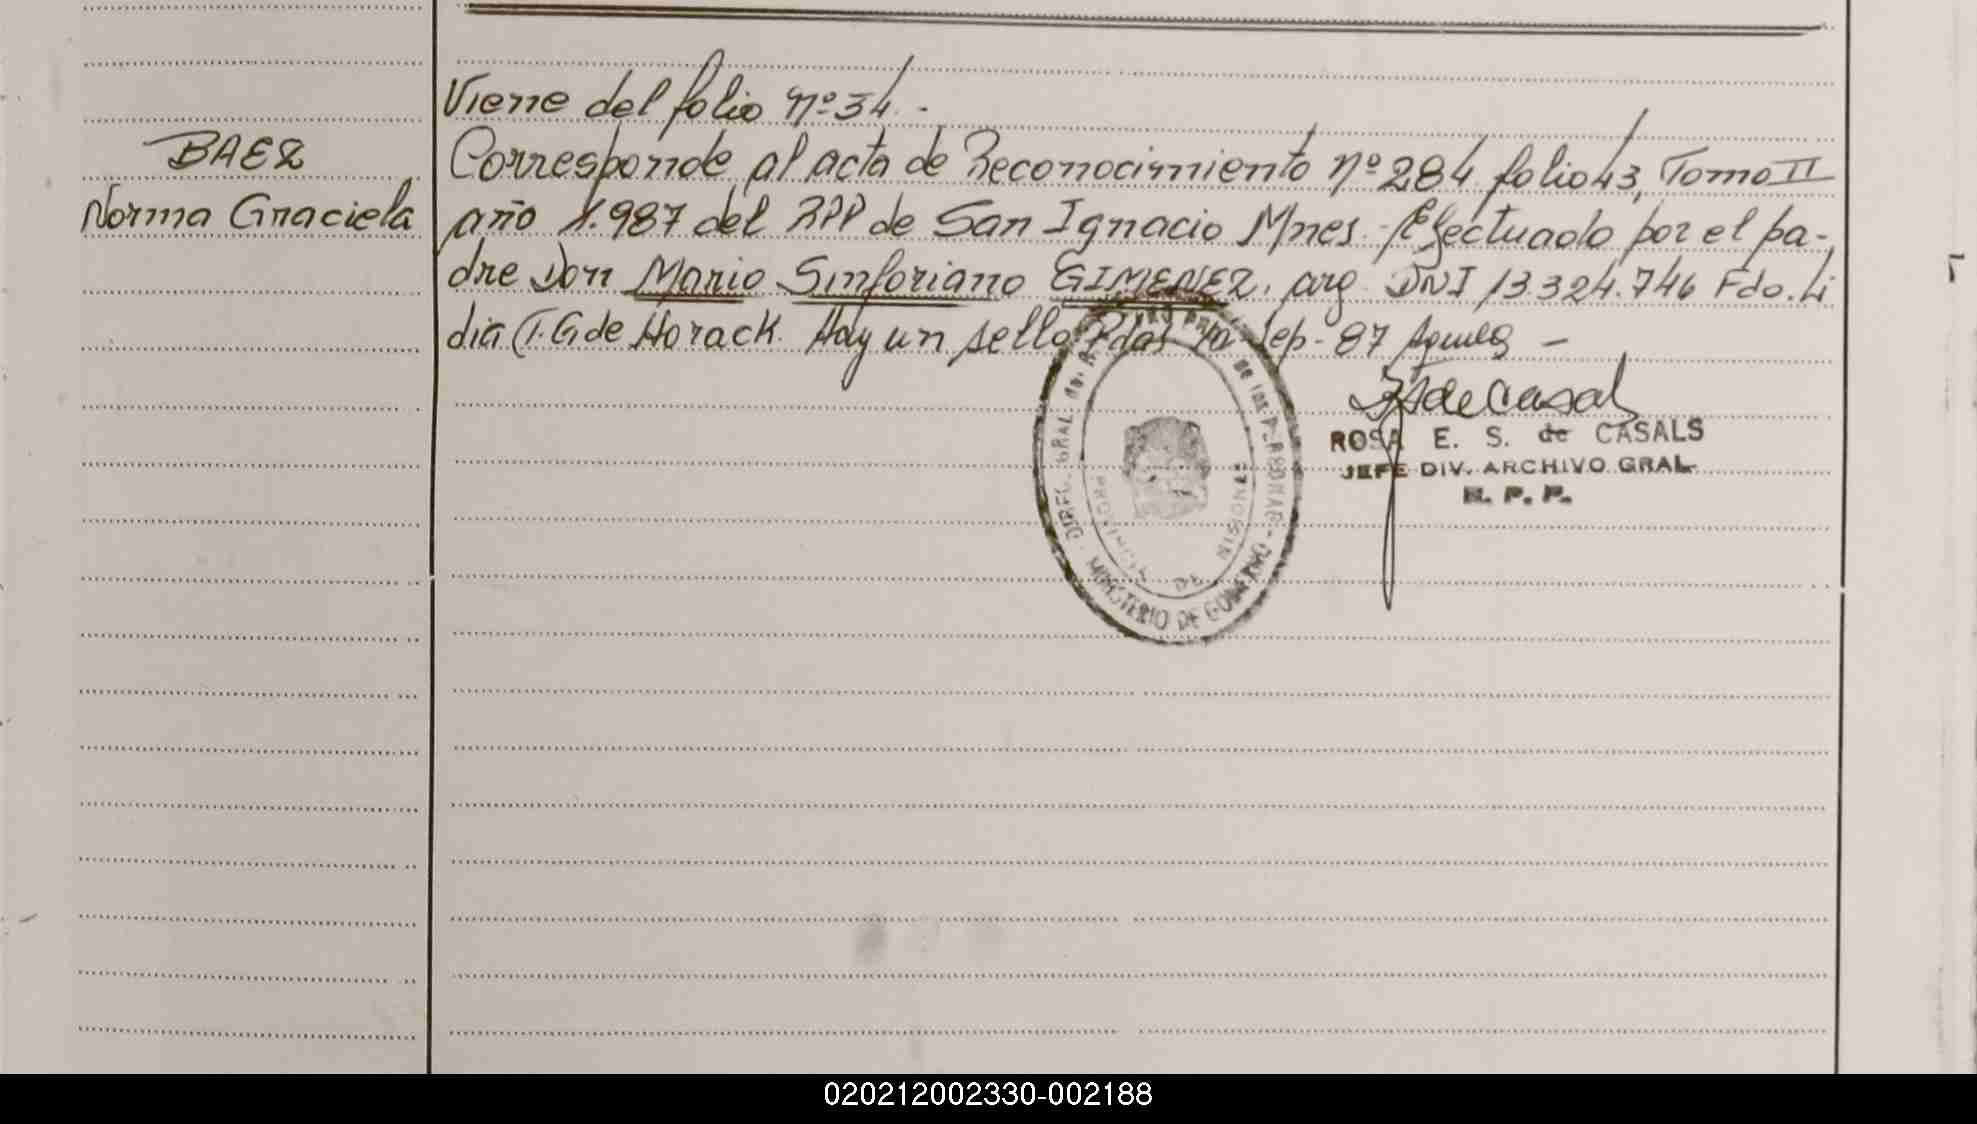 Viene del folio Nº 34.-
BAEZ
Norma Graciela
Corresponde al acta de Reconocimiento Nº 284 folio 43, Tomo II
año 1.987 del RPP de San Ignacio Mnes. Efectuado por el pa-
dre Don Mario Sinforiano GIMENEZ, arg. DNI 13324.746 Fdo. Li
dia T. G de Horack. Hay un sello Pdas 10 Sep- 87 -
ROSA E. S. de CASALS
JEFE DIV. ARCHIVO GRAL.
R. P. P.
DIREC. GRAL de de las PERSONAS - MINISTERIO DE GOBIERNO -
PROVINCIA DE MISIONES
020212002330-002188